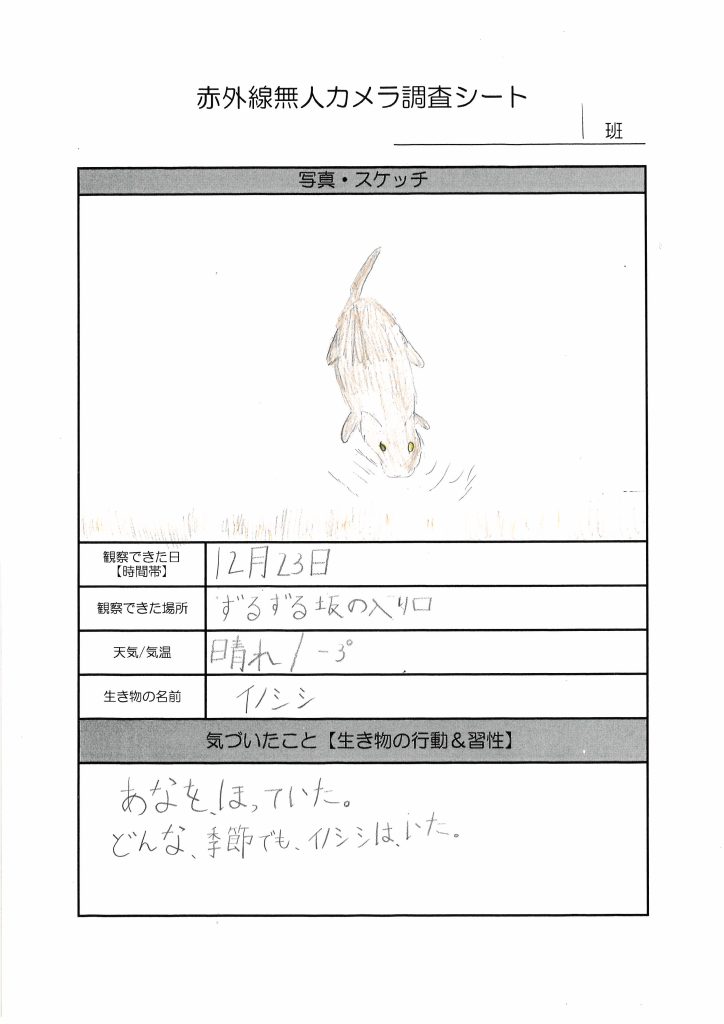 赤外線無人カメラ調査シート
1 班
写真・スケッチ
観察できた日
【時間帯】
12月23日
観察できた場所
ずるずる坂の入り口
天気/気温
晴れ / -3°
生き物の名前
イノシシ
気づいたこと【生き物の行動&習性】
あなを、ほっていた。
どんな、季節でも、イノシシは、いた。